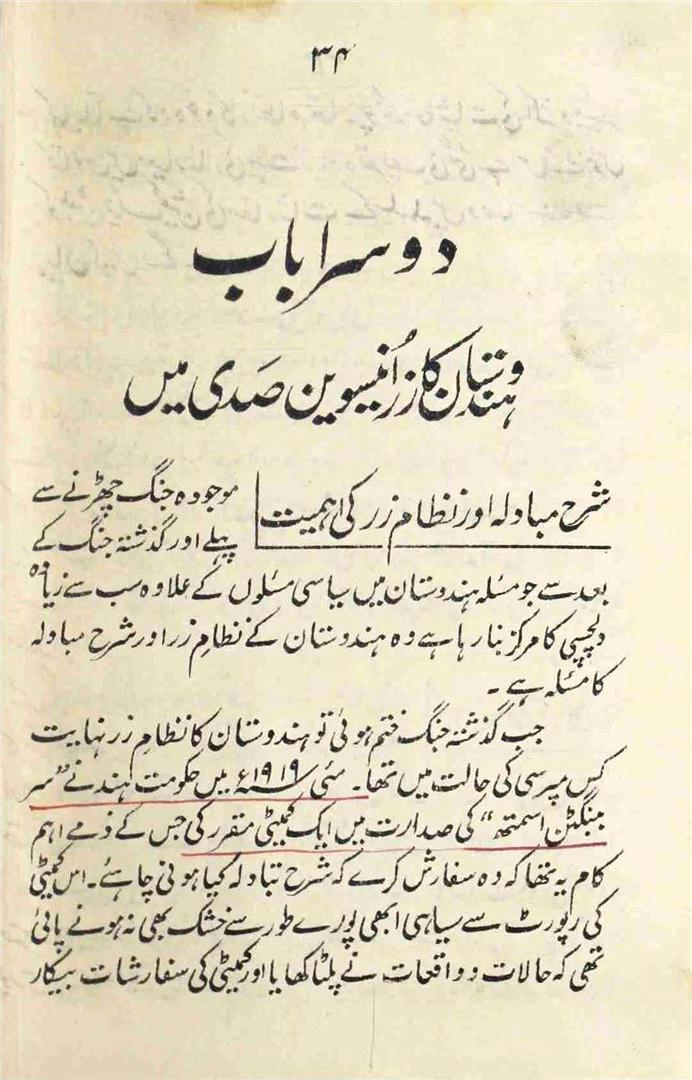 ۳۴
دوسرا باب
ہندوستان کا زر اُنیسوین صدی میں
شرح مبادلہ اور نظام زر کی اہمیت
موجودہ جنگ چھڑنے سے
پہلے اور گذشتہ جنگ کے
بعد سے جو مسئلہ ہندوستان میں سیاسی مسئلوں کے علاوہ سب سے زیادہ
دلچسپی کا مرکز بنا رہا ہے وہ ہندوستان کے نظامِ زر اور شرح مبادلہ
کا مسئلہ ہے۔
جب گذشتہ جنگ ختم ہوئی تو ہندوستان کا نظامِ زر نہایت
کس مپرسی کی حالت میں تھا۔ مئی ۱۹۱۹ء میں حکومت ہند نے "سر
ببنگٹن اسمتھ" کی صدارت میں ایک کمیٹی مقرر کی جس کے ذمے اہم
کام یہ تھا کہ وہ سفارش کرے کہ شرح تبادلہ کیا ہونی چاہئے۔ اس کمیٹی
کی رپورٹ سے سیاہی ابھی پورے طور سے خشک بھی نہ ہونے پائی
تھی کہ حالات و واقعات نے پلٹا کھایا اور کمیٹی کی سفارشات بیکار